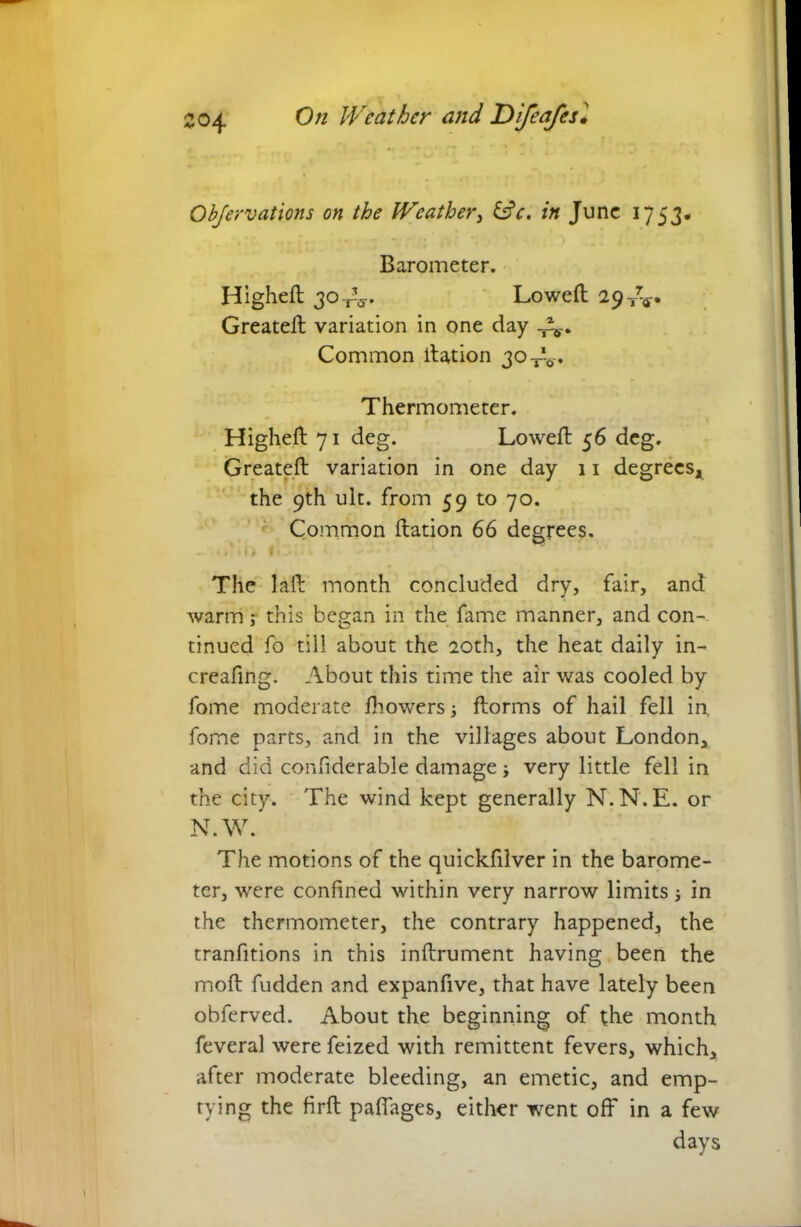 204 On Weather and Difeafes.
Obſervations on the Weather, &c. in June 1753.
Barometer.
Higheſt 30 3/10. Loweſt 29 7/10.
Greateſt variation in one day 2/10.
Common ſtation 30 1/10.
Thermometer.
Higheſt 71 deg. Loweſt 56 deg.
Greateſt variation in one day 11 degrees,
the 9th ult. from 59 to 70.
Common ſtation 66 degrees.
The laſt month concluded dry, fair, and
warm; this began in the ſame manner, and con-
tinued ſo till about the 20th, the heat daily in-
creaſing. About this time the air was cooled by
ſome moderate ſhowers; ſtorms of hail fell in
ſome parts, and in the villages about London,
and did conſiderable damage; very little fell in
the city. The wind kept generally N. N. E. or
N. W.
The motions of the quickſilver in the barome-
ter, were confined within very narrow limits; in
the thermometer, the contrary happened, the
tranſitions in this inſtrument having been the
moſt ſudden and expanſive, that have lately been
obſerved. About the beginning of the month
ſeveral were ſeized with remittent fevers, which,
after moderate bleeding, an emetic, and emp-
tying the firſt paſſages, either went off in a few
days